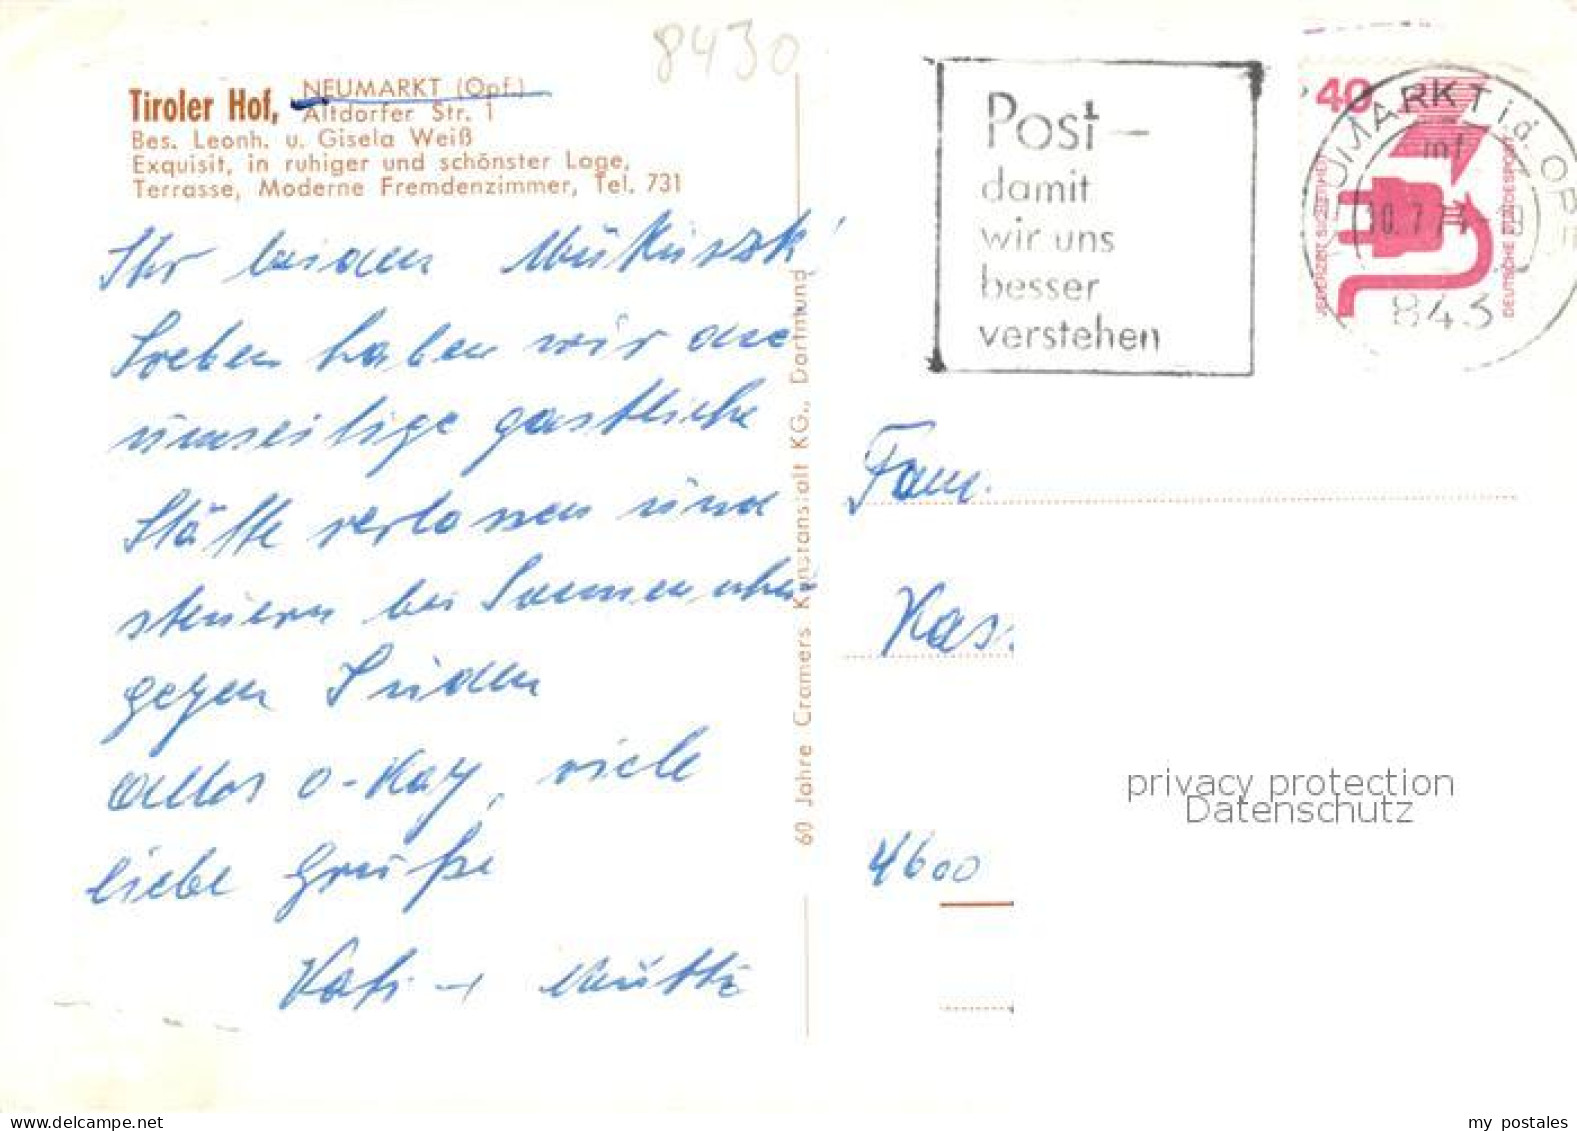 8430
Tiroler Hof, NEUMARKT (Opf.)
Altdorfer Str. 1
Bes. Leonh. u. Gisela Weiß
Exquisit, in ruhiger und schönster Lage,
Terrasse, Moderne Fremdenzimmer, Tel. 731
Ihr beiden
Soeben haben wir die
gastliche
Stätte verlassen und
steuern bei Sonnenschein
gegen Süden
Alles o-kay, viele
liebe Grüße
60 Jahre Cramers Kunstanstalt KG., Dortmund
Post –
damit
wir uns
besser
verstehen
40
JEDERZEIT SICHERHEIT
DEUTSCHE BUNDESPOST
NEUMARKT i.d. OPF
mf
843
Fam.
Kas
4600
privacy protection
Datenschutz
my postales